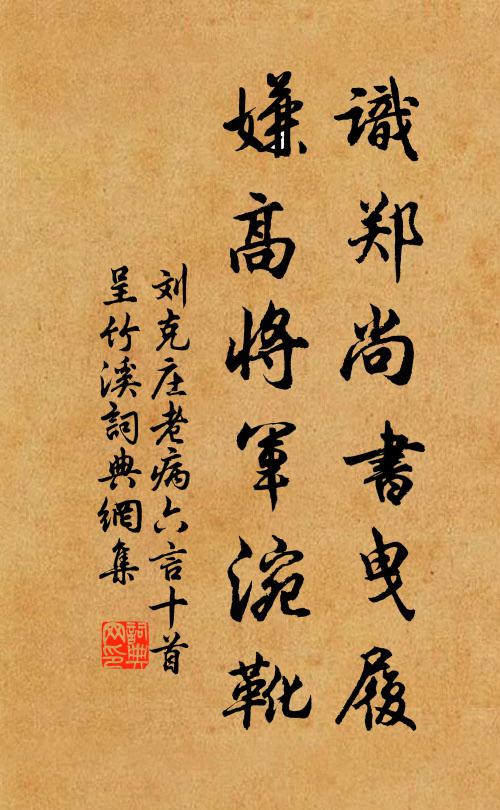 識郑尚書曳履
嫌高將軍涴靴
刘克庄老病六言十首
呈竹溪詞典網集
詞典
网印